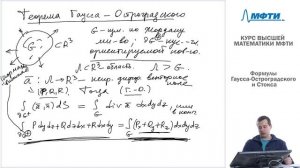 Теорема Гаусса - Остроградского
G
G - изм. по Жордану
мн-во, ∂G - кус.-гл.
ориентируемая пов-ть.
Λ ⊂ ℝ³ область. Λ ⊃ G.
a: Λ → ℝ³ - непр. дифф. векторное поле
(P,Q,R) Тогда (т. - О.)
∫ P dydz + Q dzdx + R dxdy = ∫ (Px + Qy + Rz) dxdydz
МФТИ
КУРС ВЫСШЕЙ
МАТЕМАТИКИ МФТИ
Формулы
Гаусса-Остроградского
и Стокса